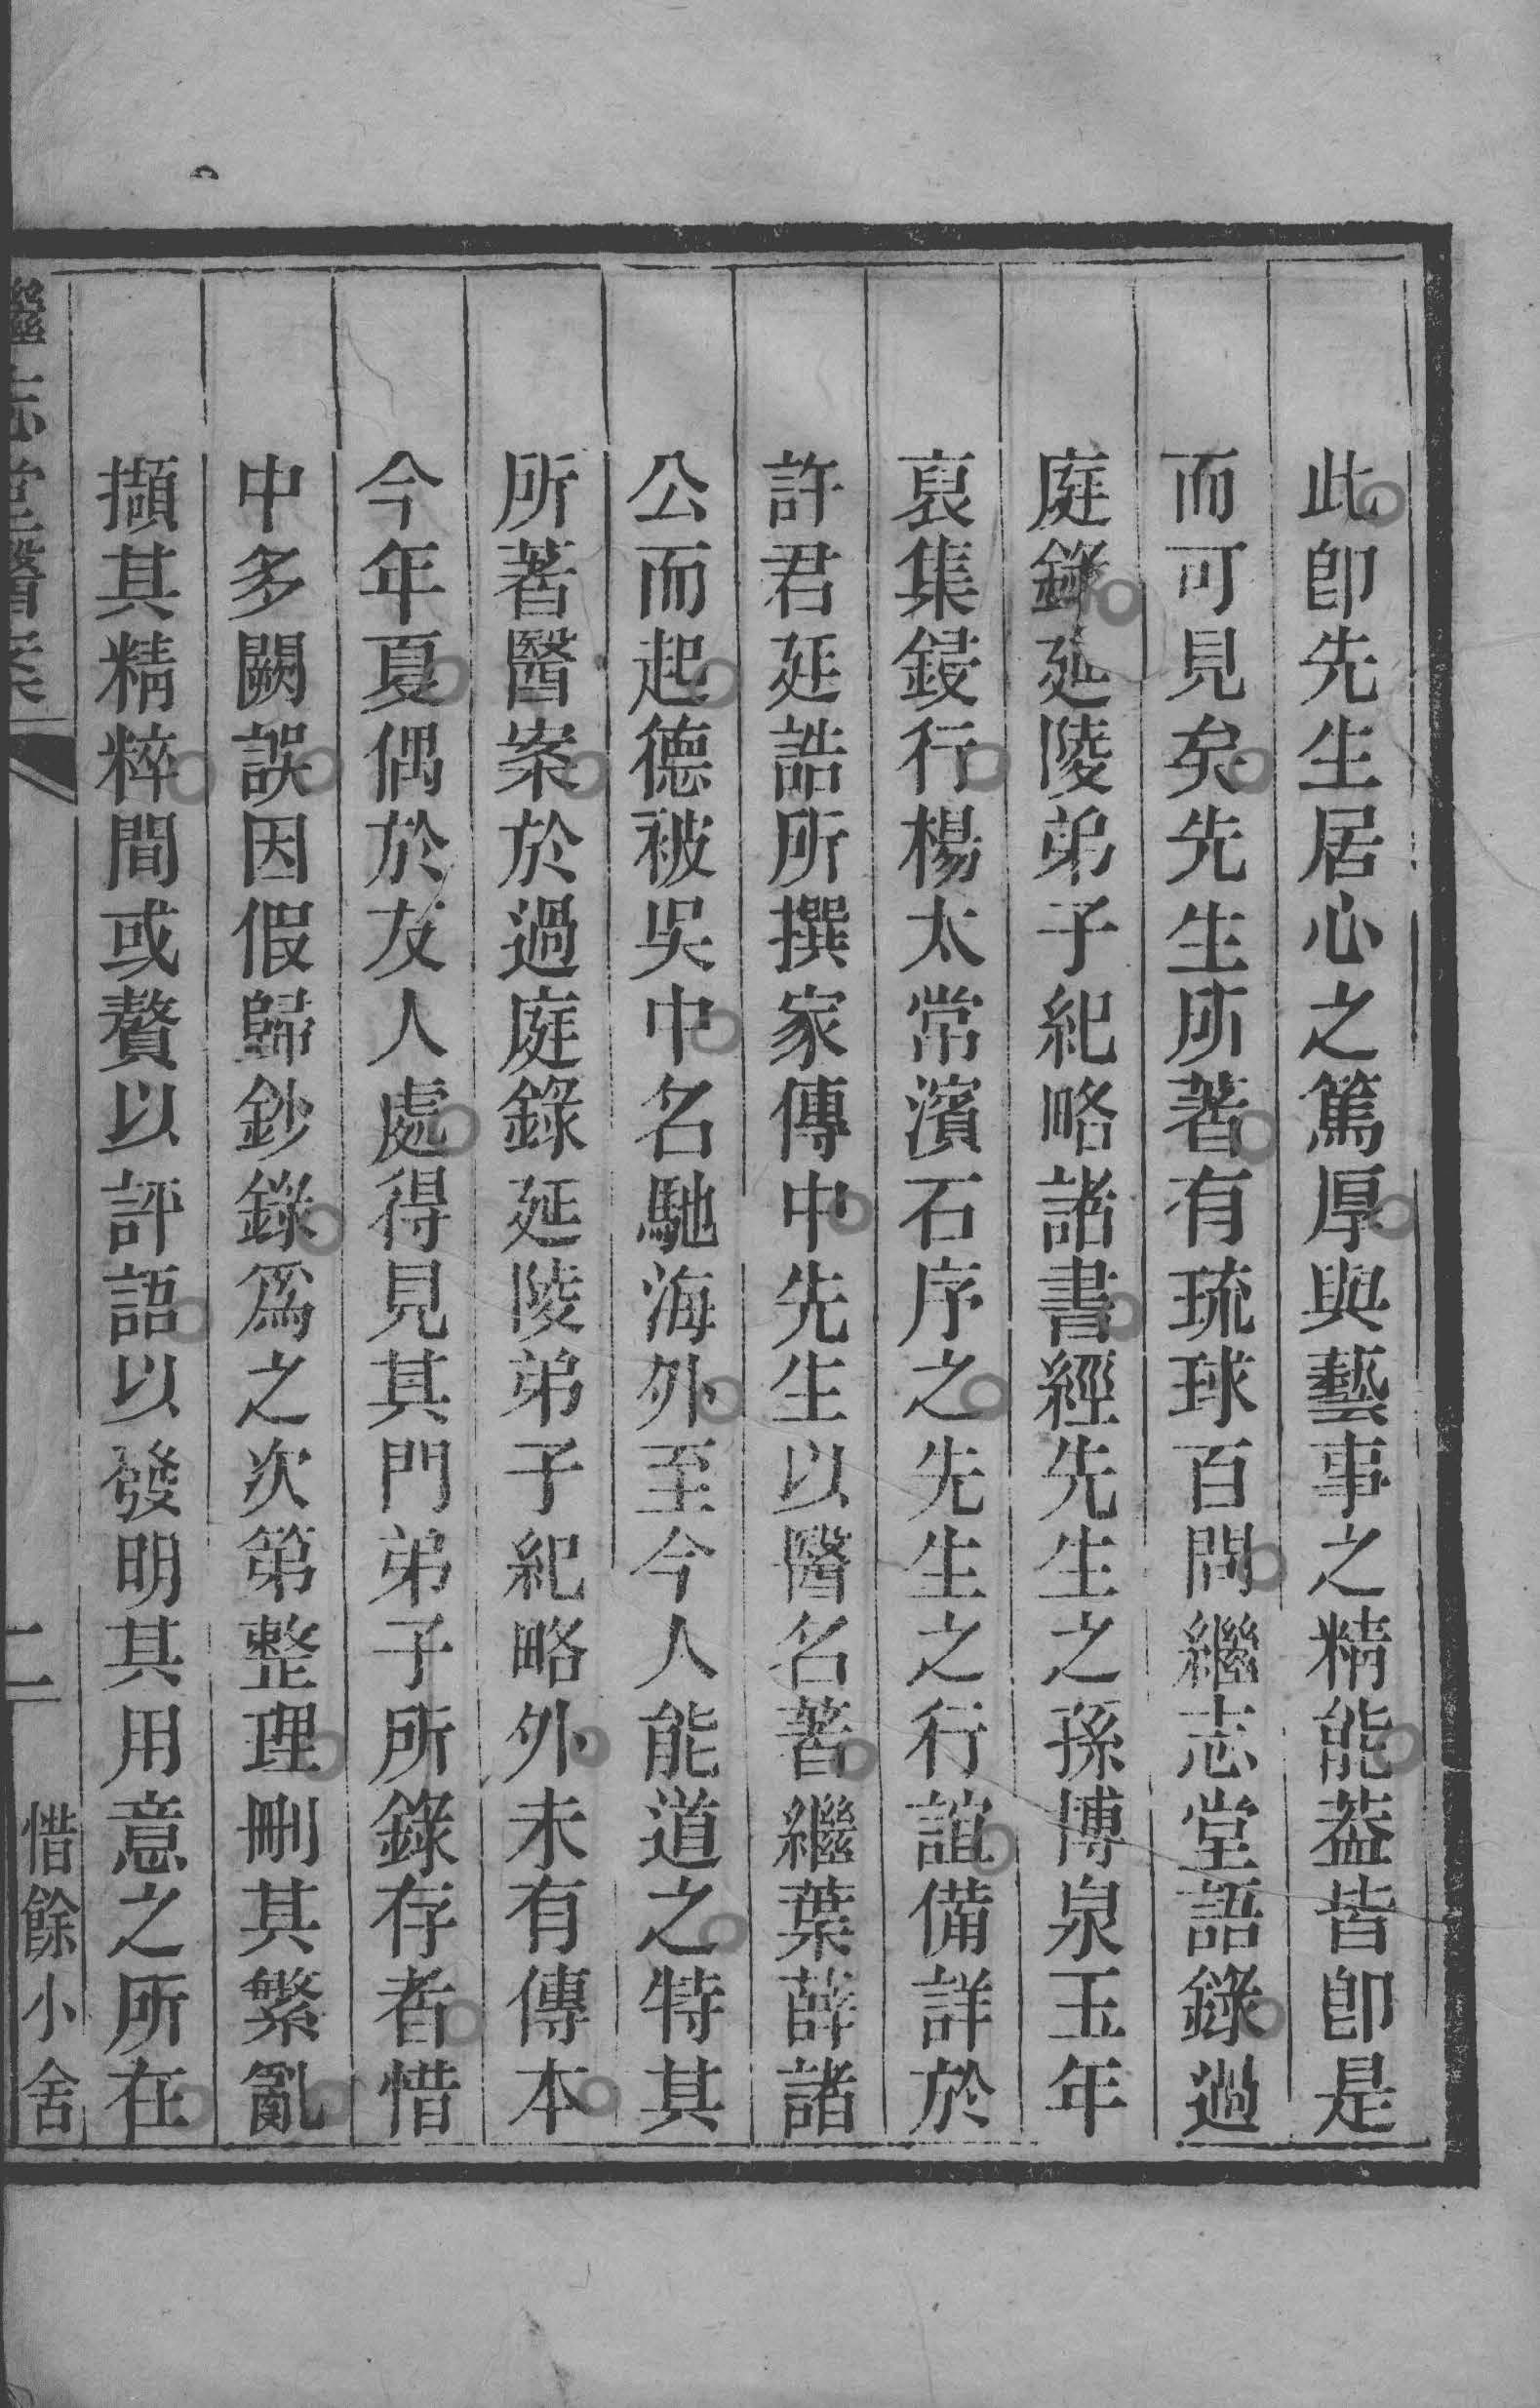 此卽先生居心之篤厚與藝事之精能葢皆卽是
而可見矣先生所著有琉球百問繼志堂語錄過
庭錄延陵弟子紀略諸書經先生之孫博泉玉年
裒集鋟行楊太常濱石序之先生之行誼備詳於
許君延誥所撰家傳中先生以醫名著繼葉薛諸
公而起德被吳中名馳海外至今人能道之特其
所著醫案於過庭錄延陵弟子紀略外未有傳本
今年夏偶於友人處得見其門弟子所錄存者惜
中多闕誤因假歸鈔錄爲之次第整理刪其繁亂
擷其精粹間或贅以評語以發明其用意之所在
繼志堂醫案
二
惜餘小舍